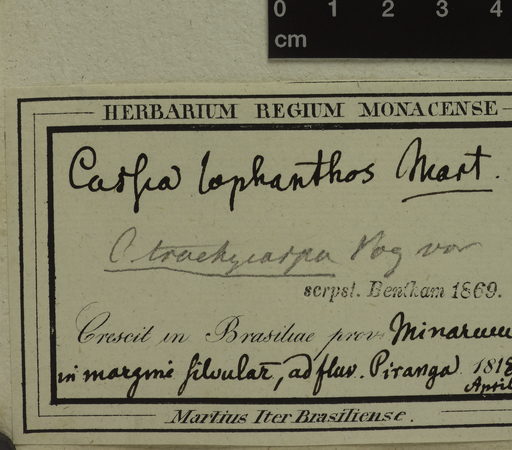 0 1 2 3 4
cm
HERBARIUM REGIUM MONACENSE
Cassia lophanthos Mart.
C. trachycarpa Vog var
scrpst. Bentham 1869.
Crescit in Brasiliae prov. Minarum
in margine silvular, ad fluv. Piranga 1818
April
Martius Iter Brasiliense.